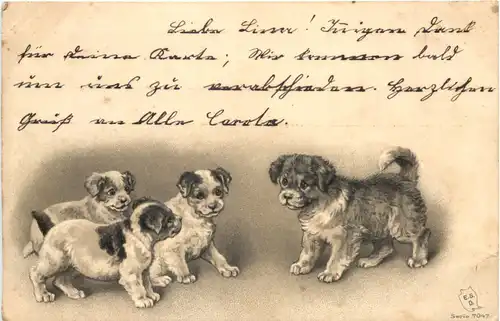 Liebe Lina! Innigen Dank
für deine Karte; Wir kommen bald
um uns zu verabschieden. Herzlichen
Gruß an Alle Carola.
E.S.
D.
Serie 7047.